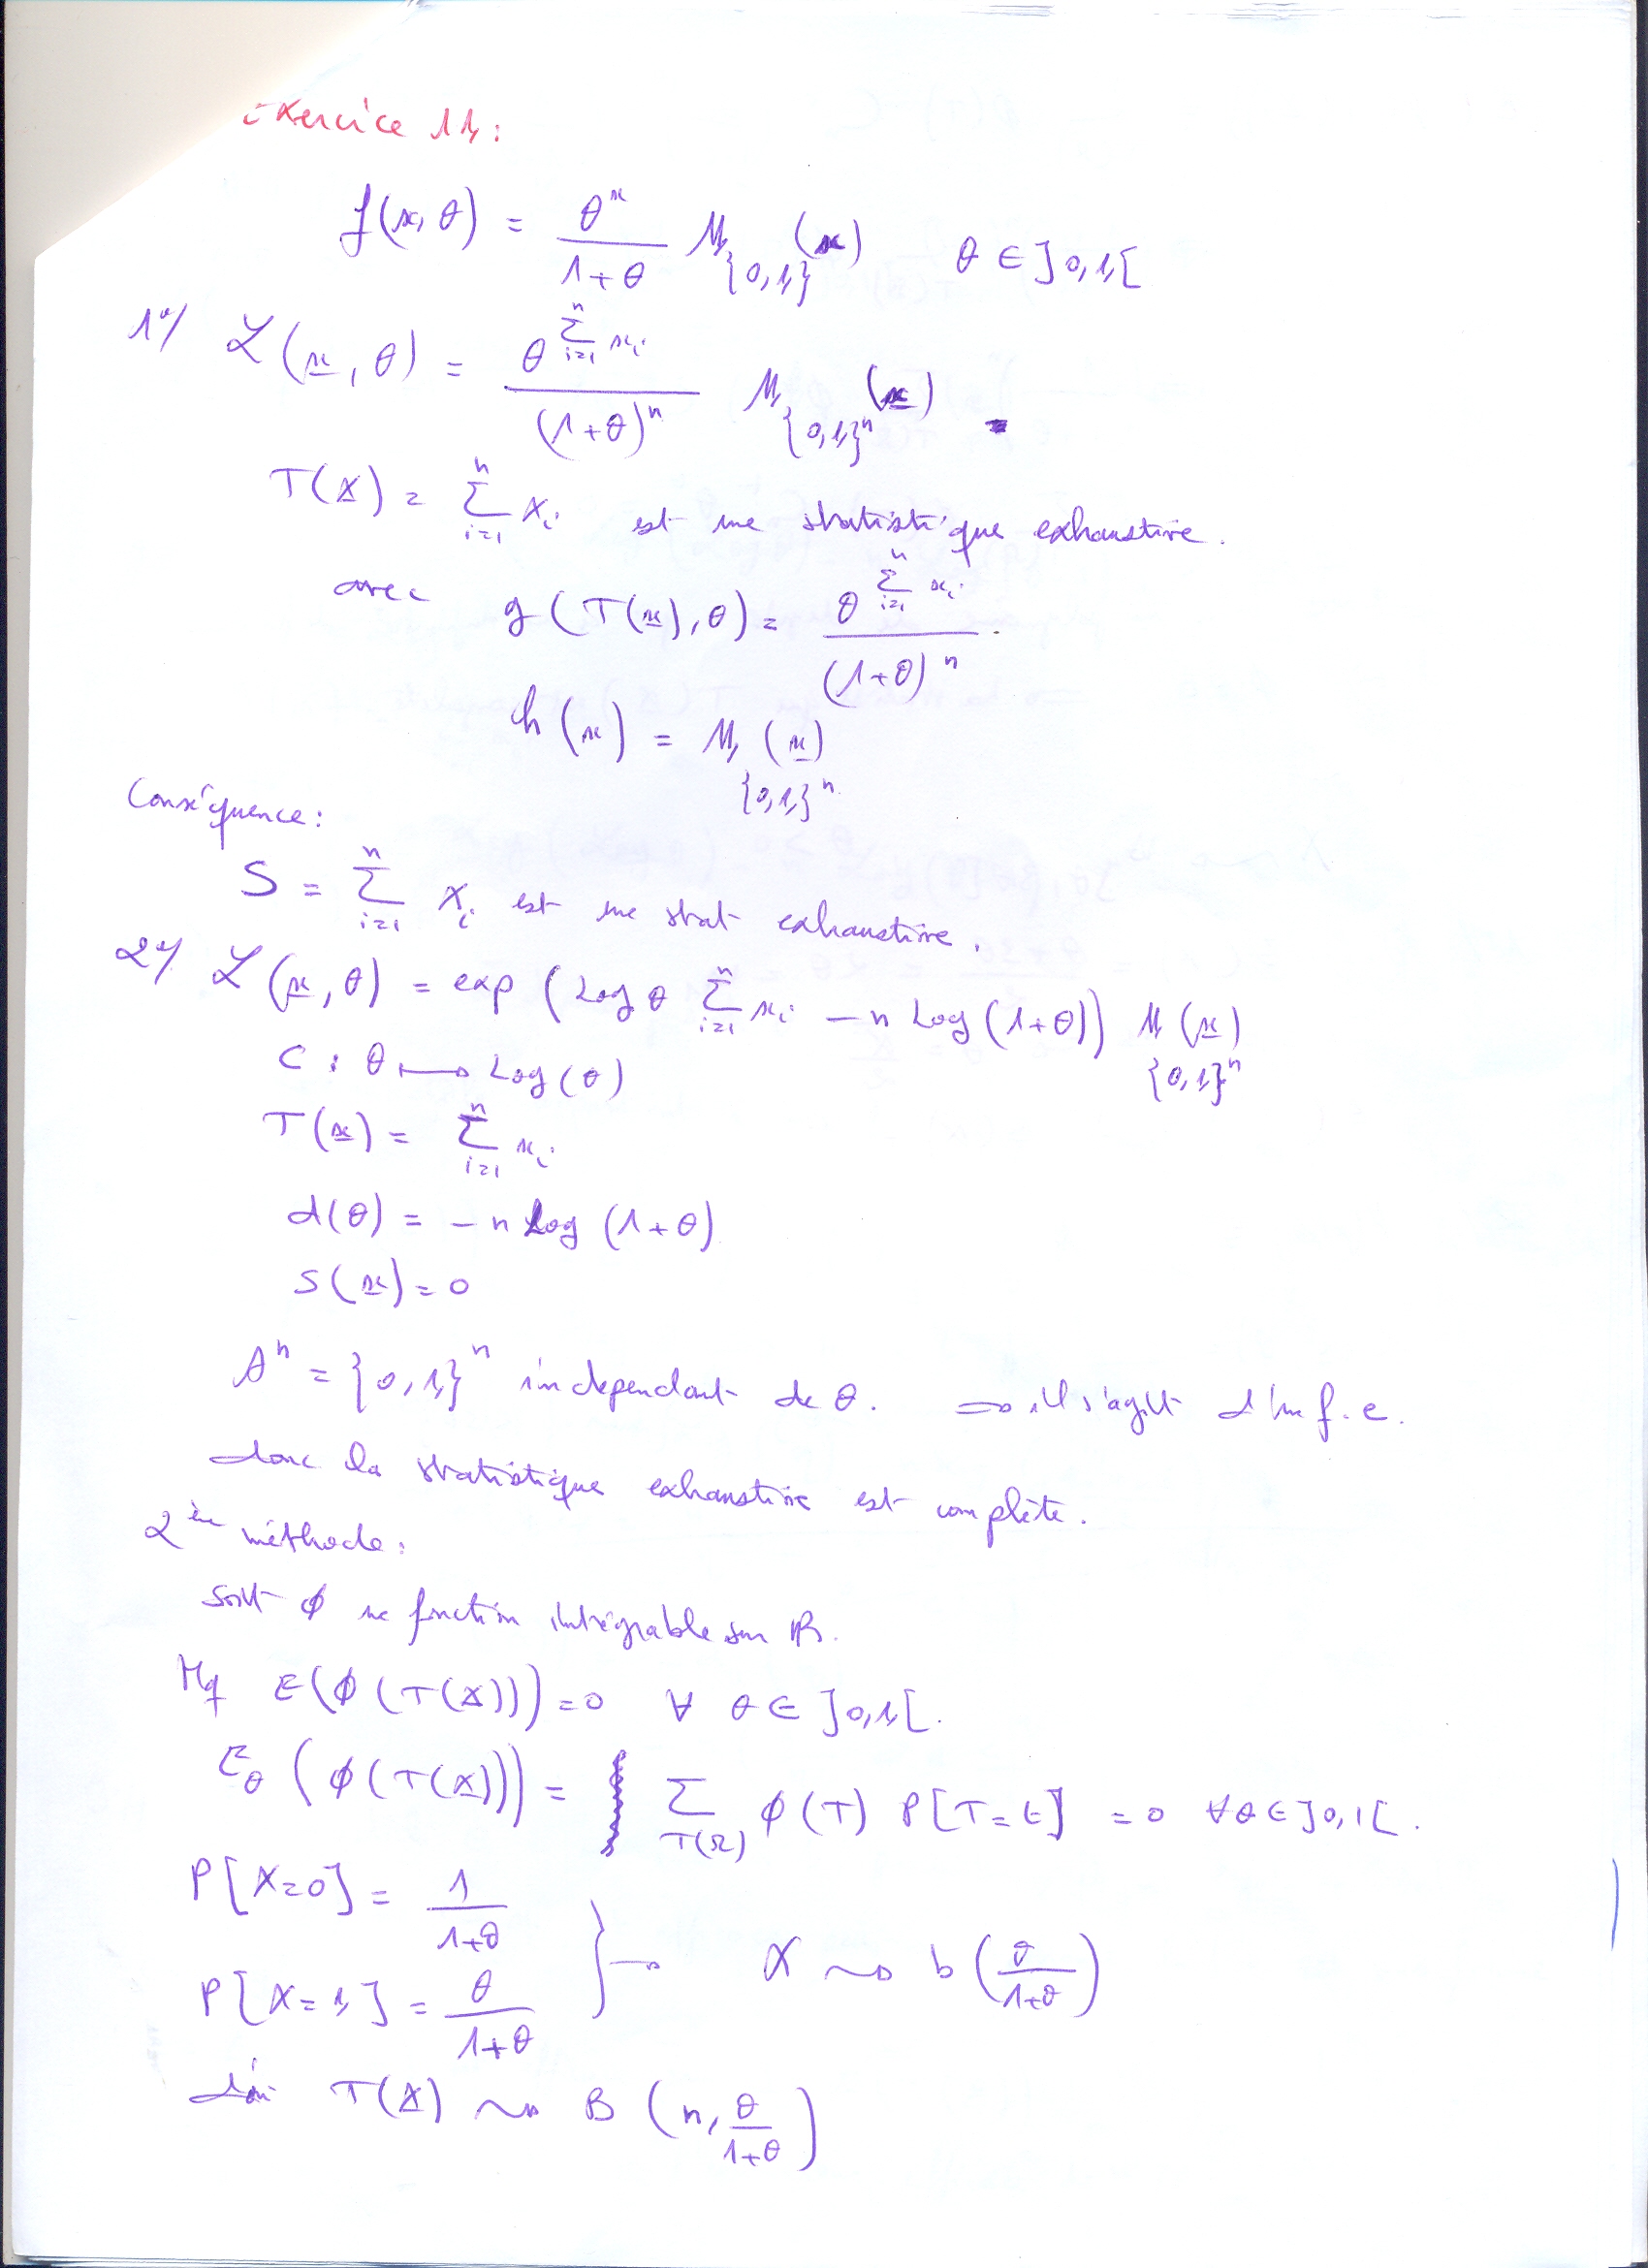 Exercice 11:
f(x, θ) = θ^x / (1+θ) 𝟙_{0,1}(x) θ ∈ ]0,1[
1°/ L(x, θ) = θ^{Σ_{i=1}^n x_i} / (1+θ)^n 𝟙_{{0,1}^n}(x)
T(X) = Σ_{i=1}^n X_i est une statistique exhaustive.
avec g(T(x), θ) = θ^{Σ_{i=1}^n x_i} / (1+θ)^n .
h(x) = 𝟙_{{0,1}^n}(x)
Conséquence:
S = Σ_{i=1}^n X_i est une stat exhaustive.
2°/ L(x, θ) = exp (Log θ Σ_{i=1}^n x_i − n Log (1+θ)) 𝟙_{{0,1}^n}(x)
C : θ ↦ Log(θ)
T(x) = Σ_{i=1}^n x_i
d(θ) = − n Log (1+θ)
S(x) = 0
A^n = {0,1}^n independant de θ. ⇒ il s'agit d'une f.e.
donc la statistique exhaustive est complète.
2ème méthode:
Soit ϕ une fonction intégrable sur ℝ.
Mq E(ϕ(T(X))) = 0 ∀ θ ∈ ]0,1[.
E_θ(ϕ(T(X))) = Σ_{T(Ω)} ϕ(T) P[T=t] = 0 ∀θ ∈ ]0,1[.
P[X=0] = 1/(1+θ)
} → X ⤳ b(θ/(1+θ))
P[X=1] = θ/(1+θ)
d'où T(X) ⤳ B(n, θ/(1+θ))